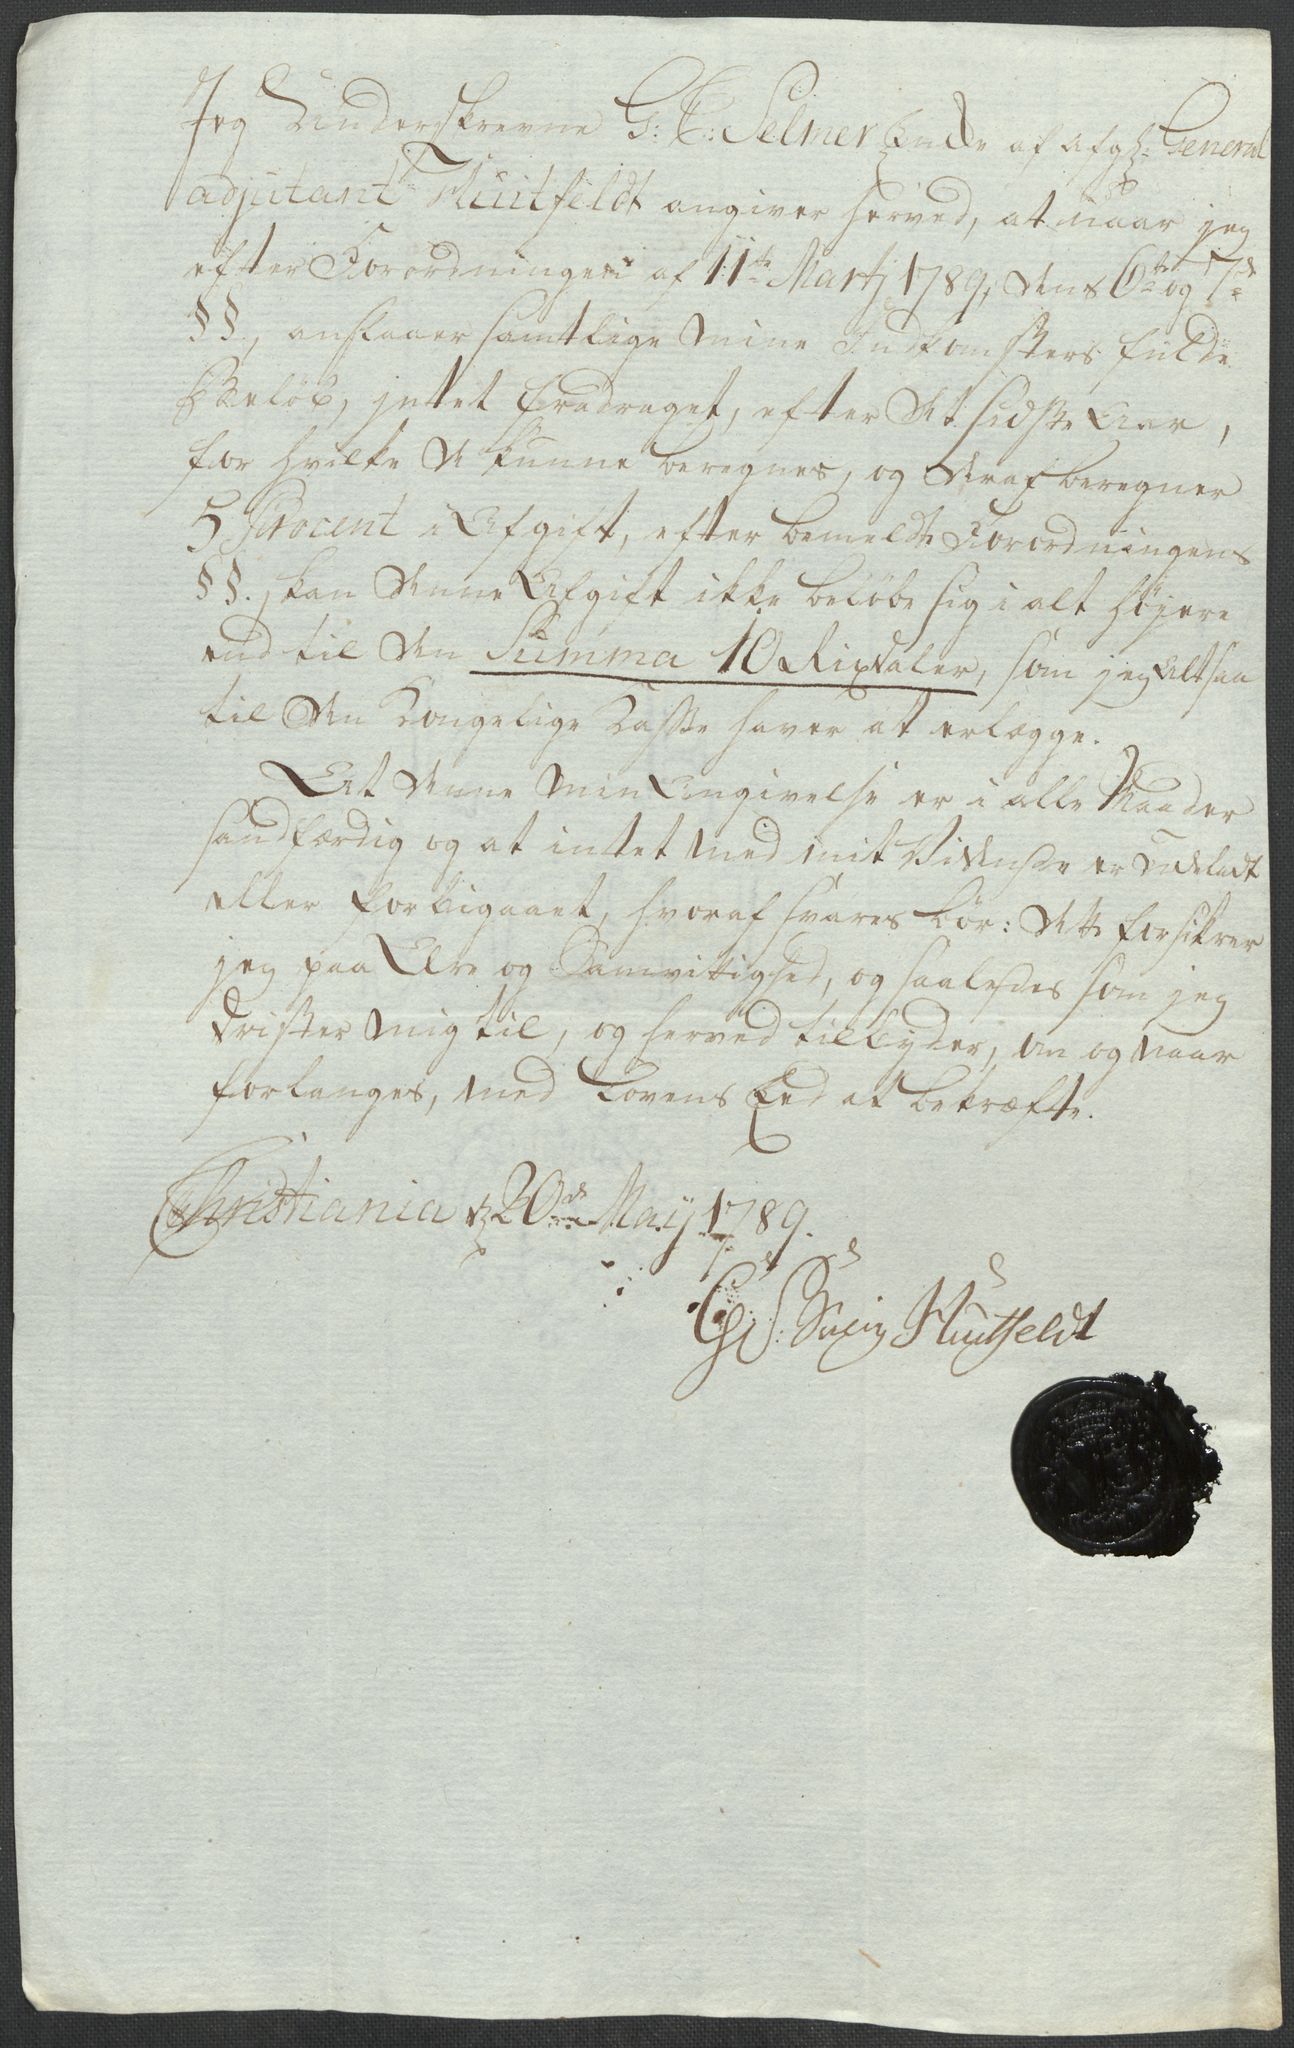 Jeg Underskrevne G: C: Selmer Enke af afg: General
adjutant Huitfeldt angiver herved, at naar jeg
efter Forordningen af 11te Martj 1789, dens 6te og 7de
§§., anslaaer samtlige mine Indkomsters fulde
Beløb, jntet fradraget, efter det sidste Aar,
for hvilke de kunne beregnes, og deraf beregner
5 Procent i Afgift, efter bemeldte Forordningens
§§. kan denne Afgift ikke beløbe sig i alt høyere
end til den Summa 10 Rixdaler, som jeg altsaa
til den Kongelige Kasse haver at erlægge.
At denne min Angivelse er i alle Maader
sandfærdig og at intet med mit Vidende er Udeladt
eller forbigaaet, hvoraf svares bør: dette forsikrer
jeg paa Ære og Samvittighed, og saaledes som jeg
drister mig til, og herved tilbyder, om og naar
forlanges, med Lovens Eed at bekræfte.
Christiania d 20de Maij 1789.
Huitfeldt